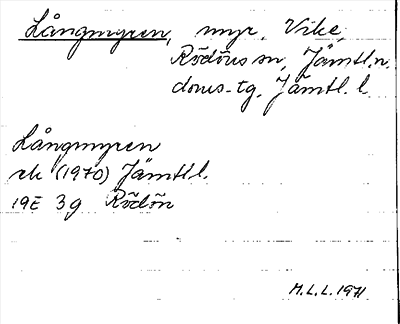 Långmyren, myr, Vike,
Rödöns sn, Jämtl. n.
doms-tg, Jämtl. l.
Långmyren
ek (1970) Jämtl l.
19E 3g Rödön
M.L.L. 1971